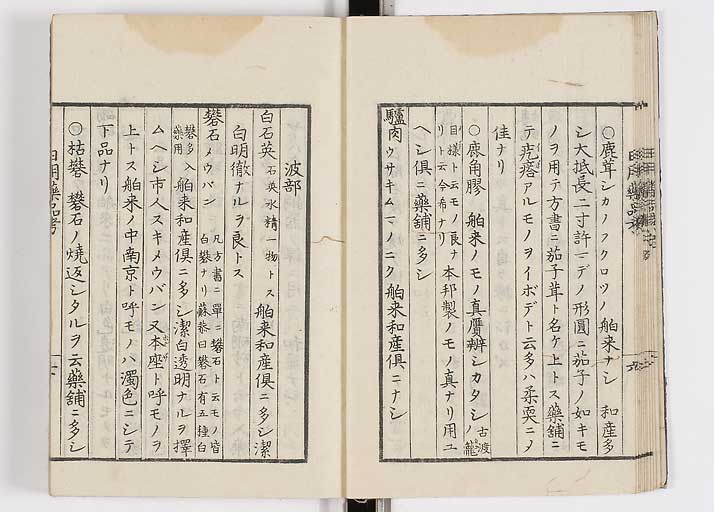 〇鹿茸シカノフクロツノ舶来ナシ 和産多
シ大抵長二寸許マデノ形圓ニ茄子ノ如キモ
ノヲ用テ方書ニ茄子茸ト名ケ上トス藥舗ニ
テ疙瘩アルモノヲイボデト云多ハ柔耎ニメ
佳ナリ
〇鹿角膠 舶来ノモノ真贋辨シカタシ古渡ノ籠
目様ト云モノ良ナリト云今希ナリ本邦製ノモノ真ナリ用ユ
ヘシ倶ニ藥舗ニ多シ
驢肉ウサキムマノニク舶来和産倶ニナシ
波部
白石英石英水精一物トス 舶来和産倶ニ多シ潔
白明徹ナルヲ良トス
礬石メウバン 凡方書ニ單ニ礬石ト云モノ皆白礬ナリ蘇恭曰礬石有五種白
礬多入藥用舶来和産倶ニ多シ潔白透明ナルヲ擇
ムヘシ市人スキメウバン又本座ト呼モノヲ
上トス舶来ノ中南京ト呼モノハ濁色ニシテ
下品ナリ
〇枯礬 礬石ノ燒返シタルヲ云藥舗ニ多シ
日用藥品考